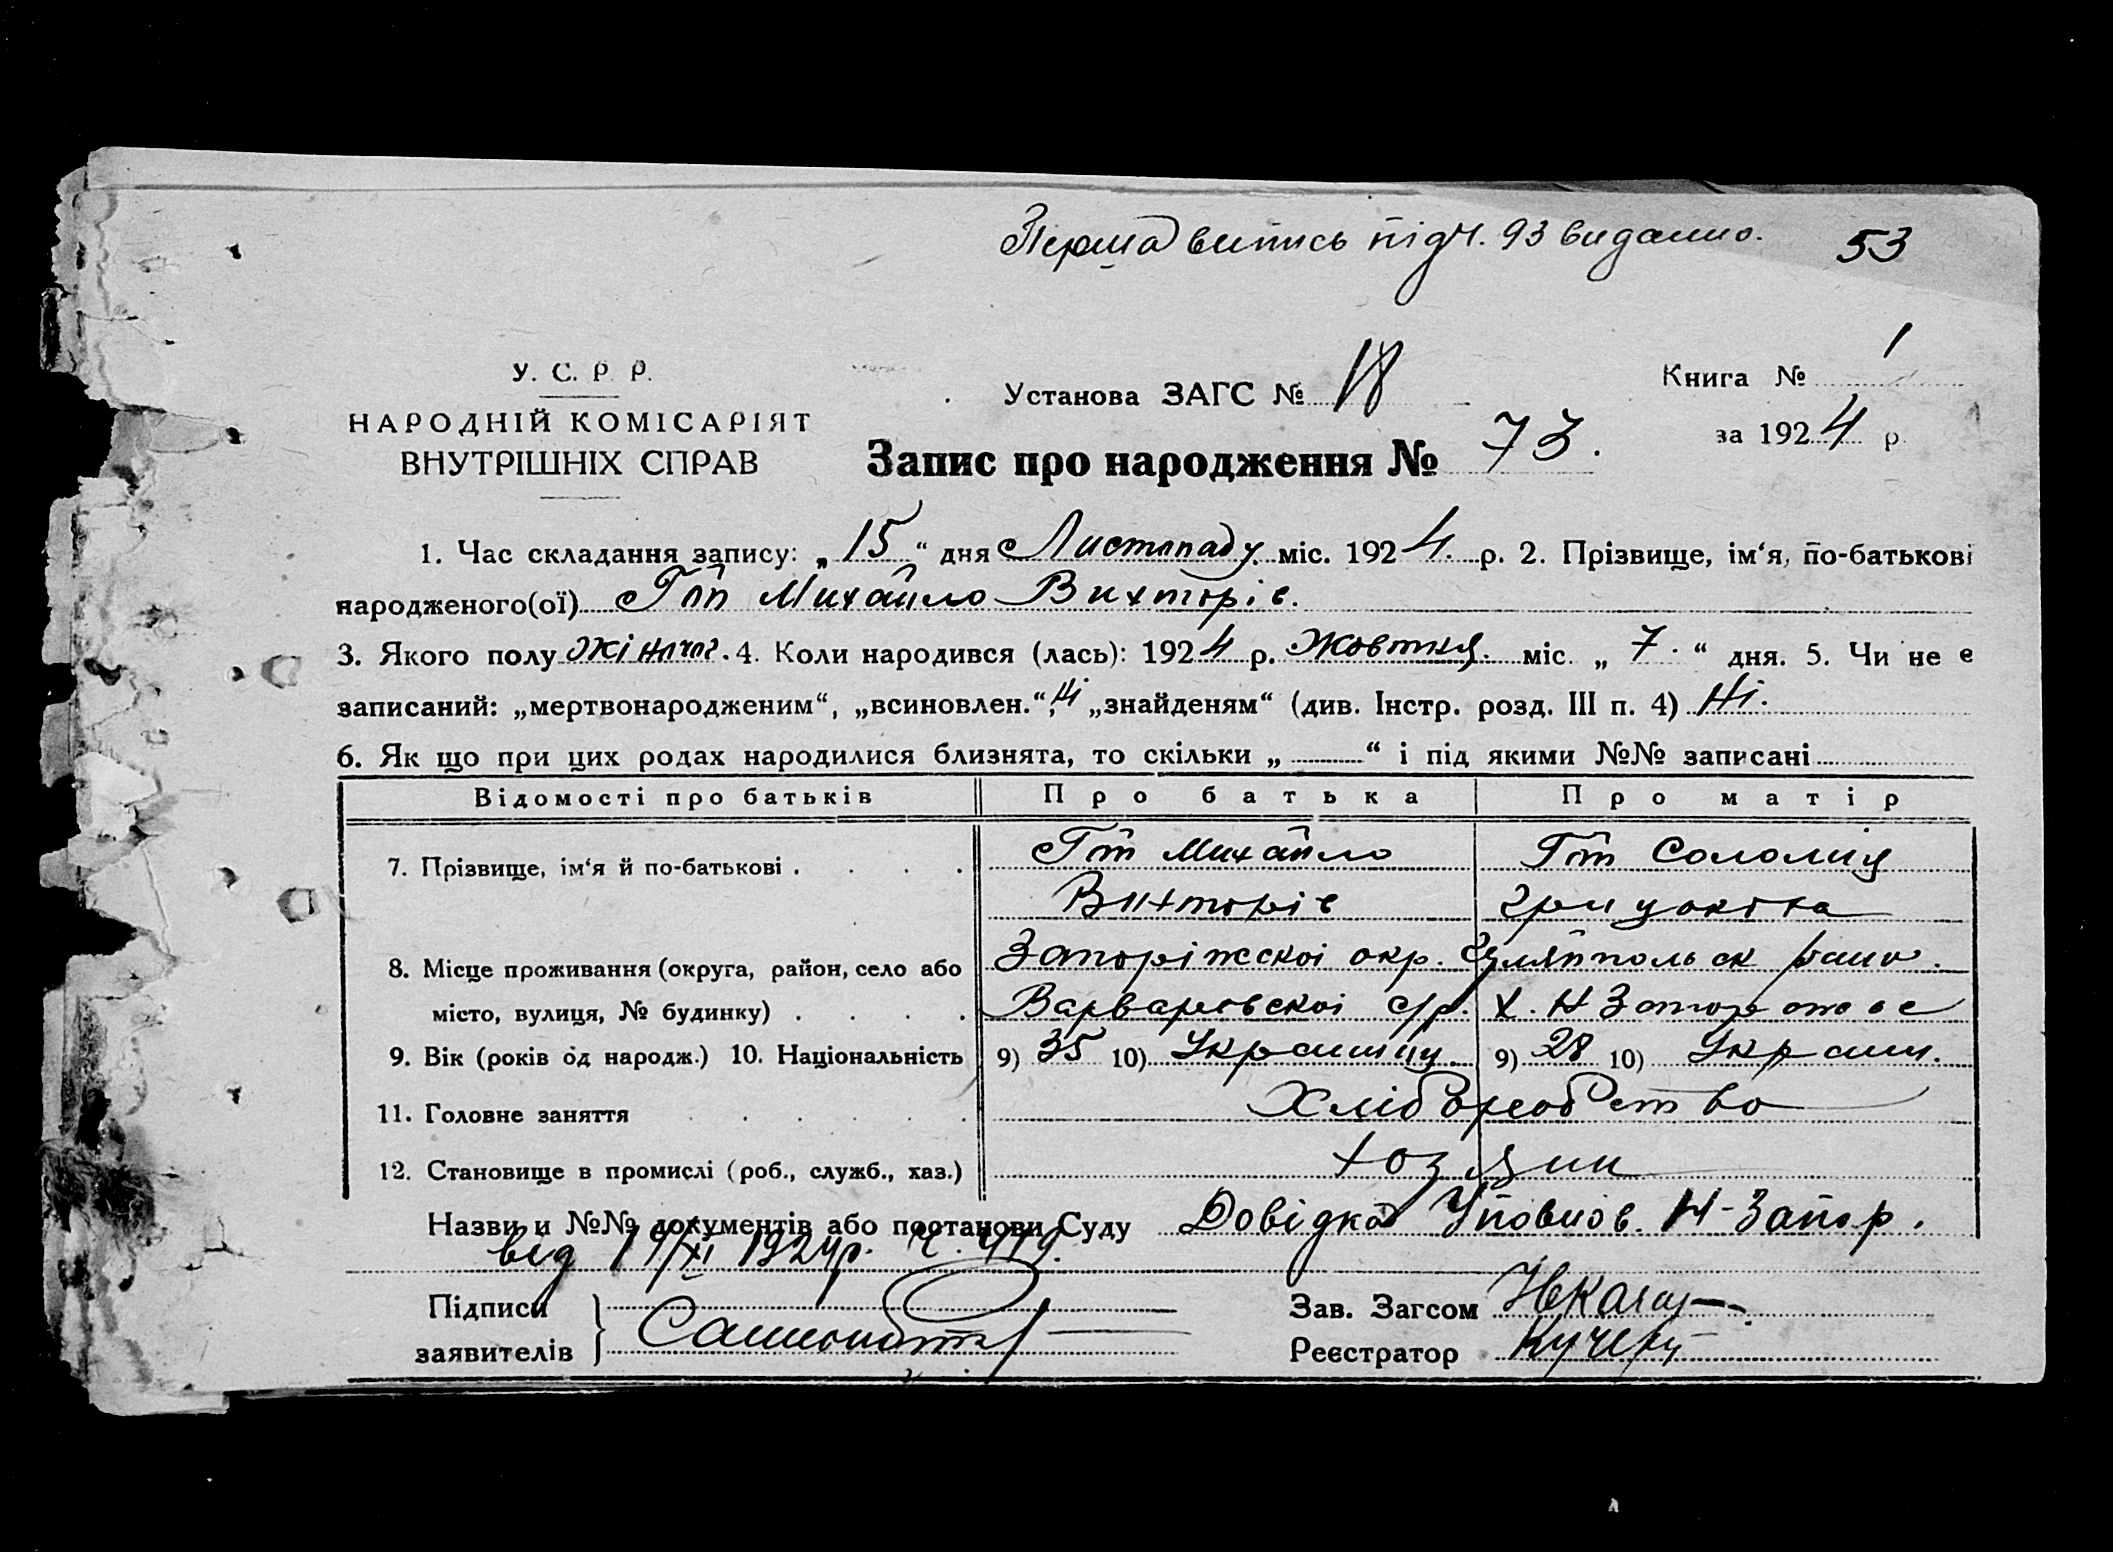 Перша випись під Ч. 93 видано. 53
У. С. Р. Р.
НАРОДНІЙ КОМІСАРІЯТ
ВНУТРІШНІХ СПРАВ
Установа ЗАГС № 18
Книга № 1
за 1924 р.
Запис про народження № 73.
1. Час складання запису: „15“ дня Листопаду міс. 1924 р. 2. Прізвище, ім‘я, по-батькові
народженого(ої) Михайло Вихторів.
3. Якого полу жіноч. 4. Коли народився (лась): 1924 р. Жовтня міс. „7“ дня. 5. Чи не є
записаний: „мертвонародженим“, „всиновлен.“, ні „знайденям“ (див. Інстр. розд. III п. 4) Ні.
6. Як що при цих родах народилися близнята, то скільки „ “ і під якими №№ записані
Відомості про батьків Про батька Про матір
7. Прізвище, ім‘я й по-батькові Гот Михайло Гот Соломія
Вихторів Грицокова
8. Місце проживання (округа, район, село або Запоріжскоі окр. Гуляйпольск район.
місто, вулиця, № будинку) Варварівскоі с/р. х. Н Запорожжє
9. Вік (років од народж.) 10. Національність 9) 35 10) Украинц. 9) 28 10) Украин.
11. Головне заняття Хліборобство
12. Становище в промислі (роб., служб., хаз.) хозяин
Назви и №№ документів або постанови Суду Довідка Уповнов. Н-Запор.
від 1924р. Ч.
Підписи
заявителів
Зав. Загсом
Реєстратор Кучер